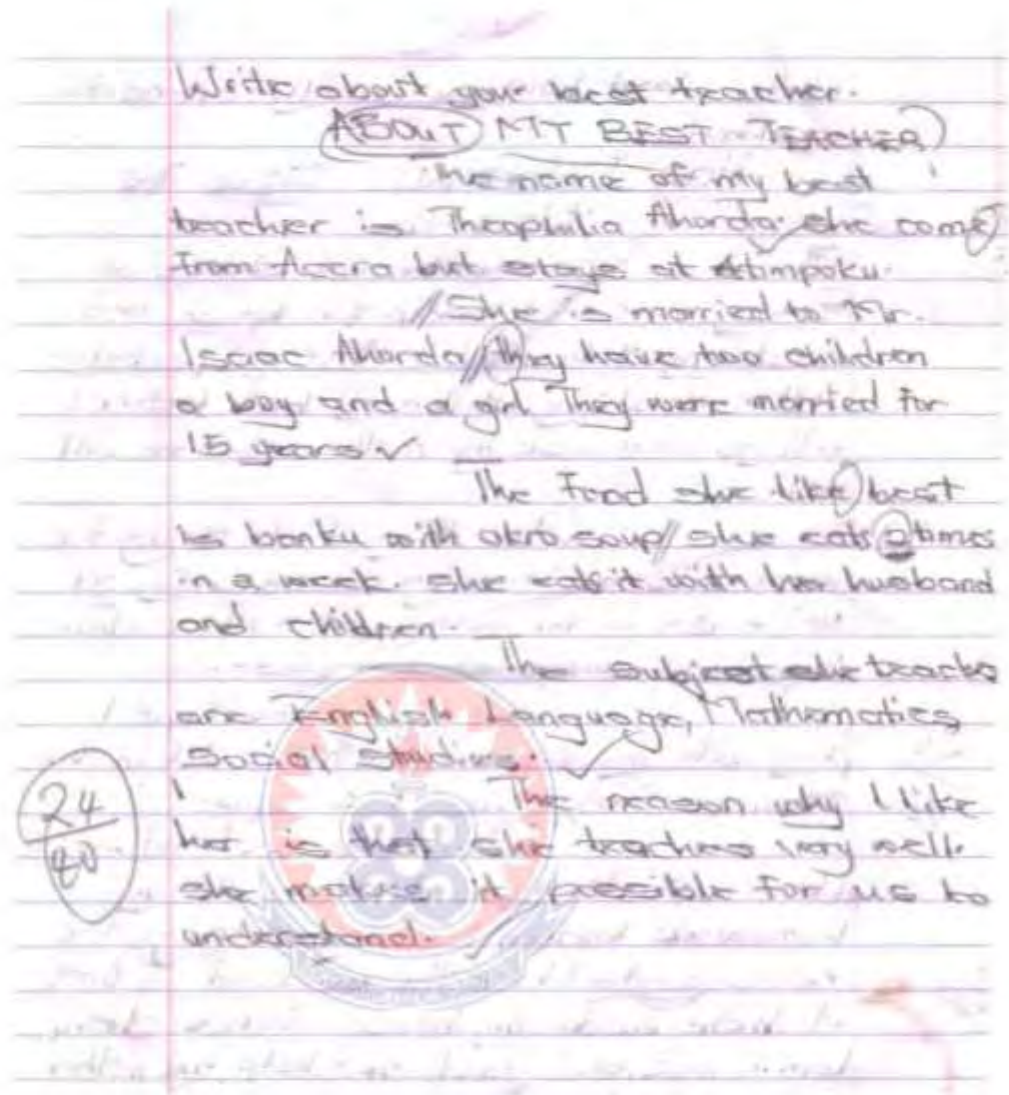 Write about your best teacher.
ABOUT MY BEST TEACHER
The name of my best
teacher is Theophilia Ahorda. she come
from Accra but stays at Atimpoku.
She is married to Mr.
Isaac Ahorda they have two children
a boy and a girl They were married for
15 years
The Food she like best
is banku with okro soup she eats 2 times
in a week. she eats it with her husband
and children.
The subject she teachs
are English Language, Mathematics,
Social Studies.
The reason why I like
her is that she teaches very well.
she makes it possible for us to
understand.
24
40